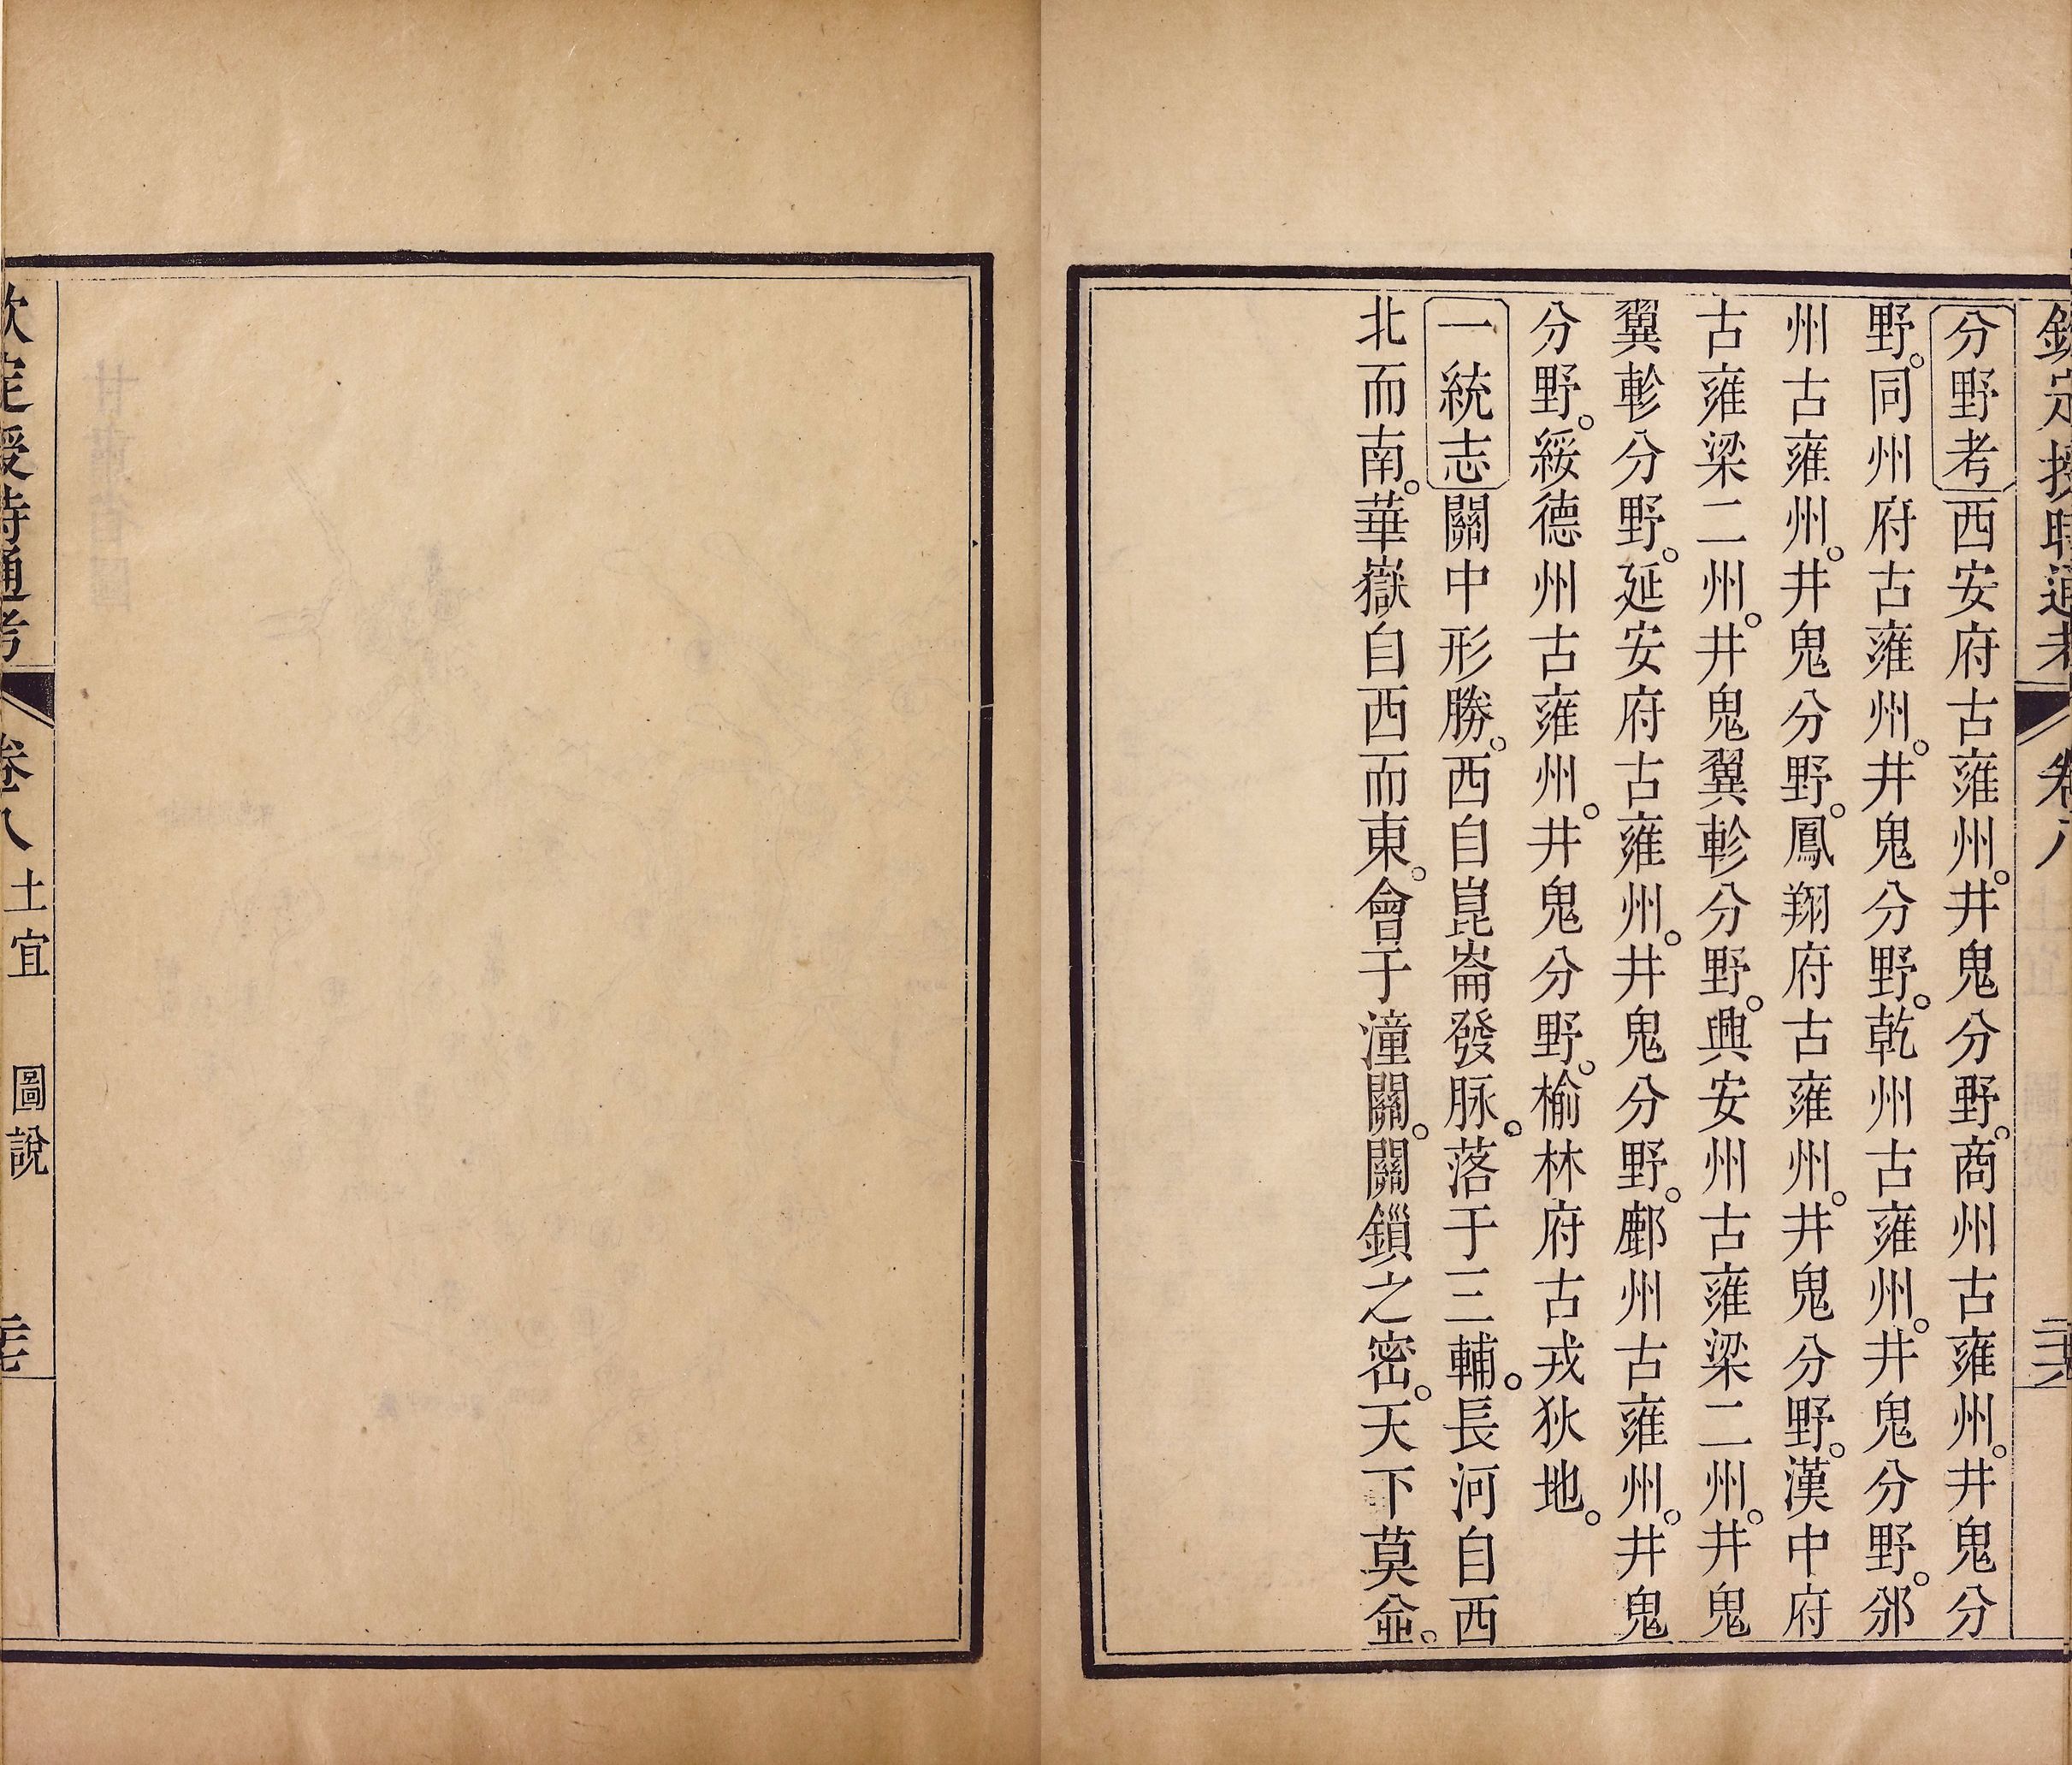 欽定授時通考 卷八
分野考西安府古雍州。井鬼分野。商州古雍州。井鬼分
野。同州府古雍州。井鬼分野。乾州古雍州。井鬼分野。邠
州古雍州。井鬼分野。鳳翔府古雍州。井鬼分野。漢中府
古雍梁二州。井鬼翼軫分野。興安州古雍梁二州。井鬼
翼軫分野。延安府古雍州。井鬼分野。鄜州古雍州。井鬼
分野。綏德州古雍州。井鬼分野。榆林府古戎狄地。
一統志關中形勝。西自崑崙發脉。落于三輔。長河自西
北而南。華嶽自西而東。會于潼關。關鎖之密。天下莫並。
欽定授時通考 卷八 土宜 圖說